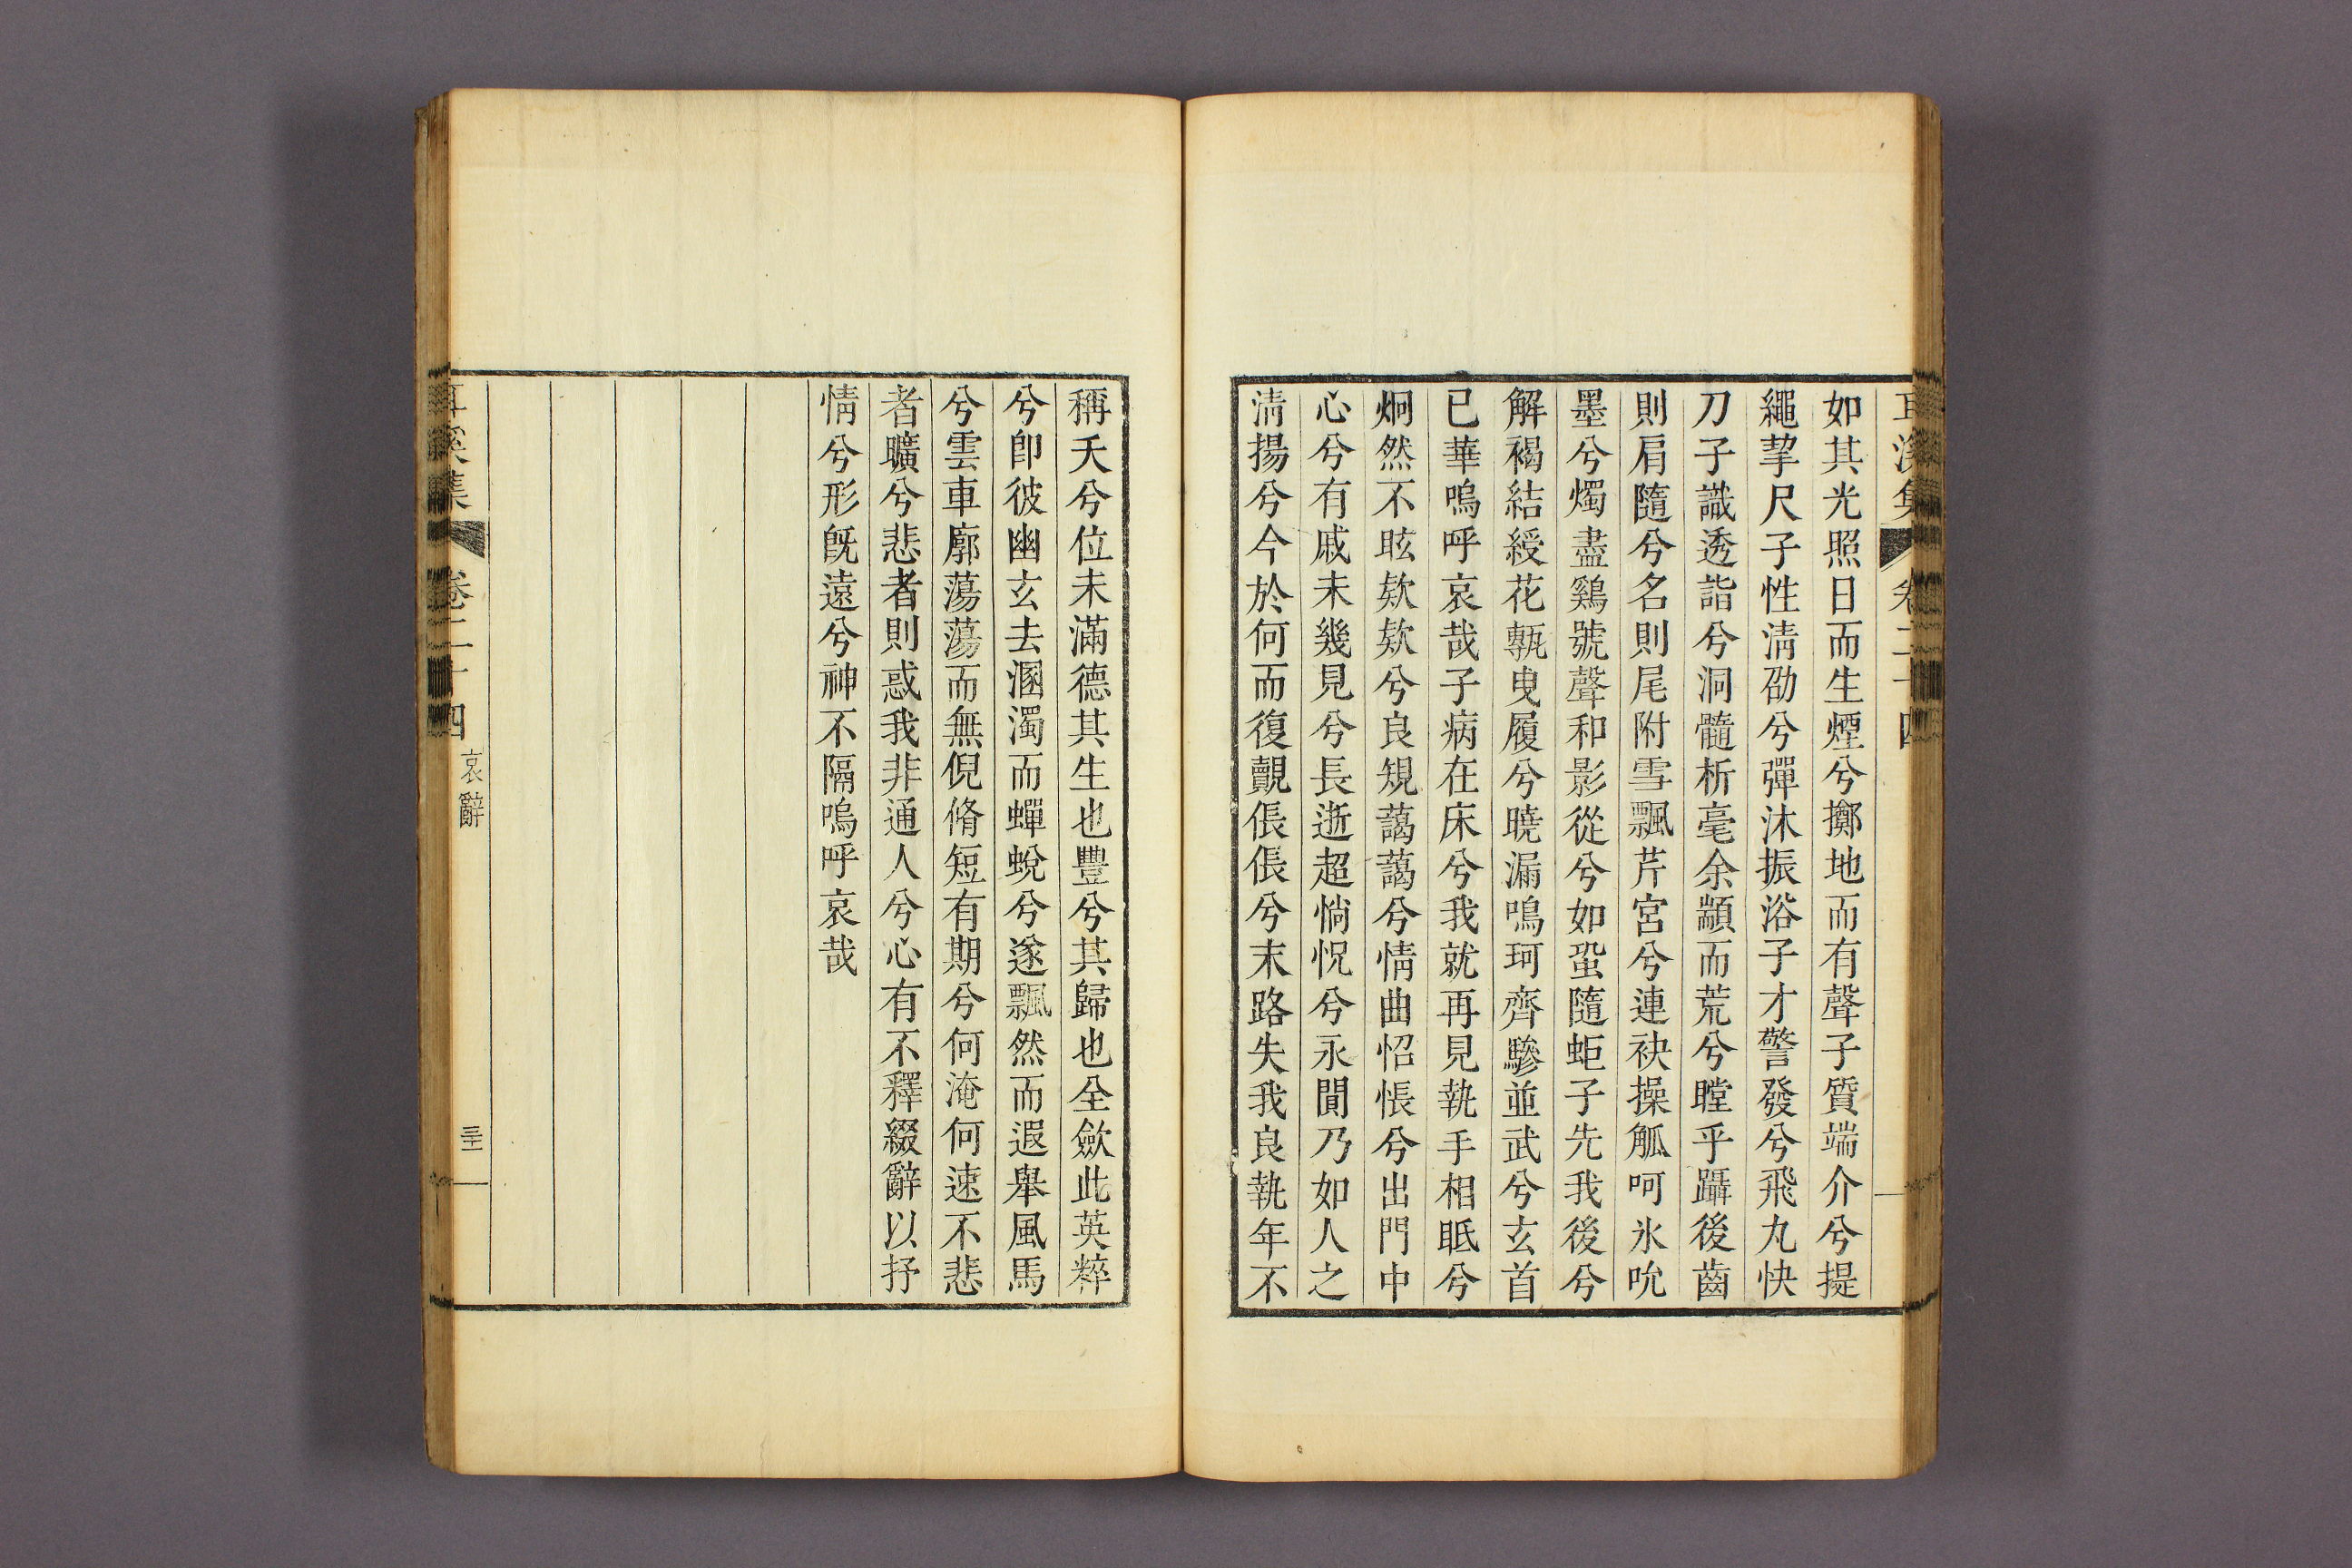 耳溪集 卷二十四
如其光照日而生煙兮擲地而有聲子質端介兮提
繩挈尺子性淸劭兮彈沐振浴子才警發兮飛丸快
刀子識透詣兮洞髓析毫余顓而荒兮瞠乎躡後齒
則肩隨兮名則尾附雪飄芹宮兮連袂操觚呵氷吮
墨兮燭盡鷄號聲和影從兮如蛩隨蚷子先我後兮
解褐結綬花甎曳履兮曉漏鳴珂齊驂並武兮玄首
已華嗚呼哀哉子病在床兮我就再見執手相眡兮
炯然不眩欸欸兮良規藹藹兮情曲怊悵兮出門中
心兮有戚未幾見兮長逝超惝怳兮永閴乃如人之
淸揚兮今於何而復覿倀倀兮末路失我良執年不
稱夭兮位未滿德其生也豐兮其歸也全歛此英粹
兮卽彼幽玄去溷濁而蟬蛻兮遂飄然而遐舉風馬
兮雲車廓蕩蕩而無倪脩短有期兮何淹何速不悲
者曠兮悲者則惑我非通人兮心有不釋綴辭以抒
情兮形旣遠兮神不隔嗚呼哀哉
耳溪集 卷二十四 哀辭